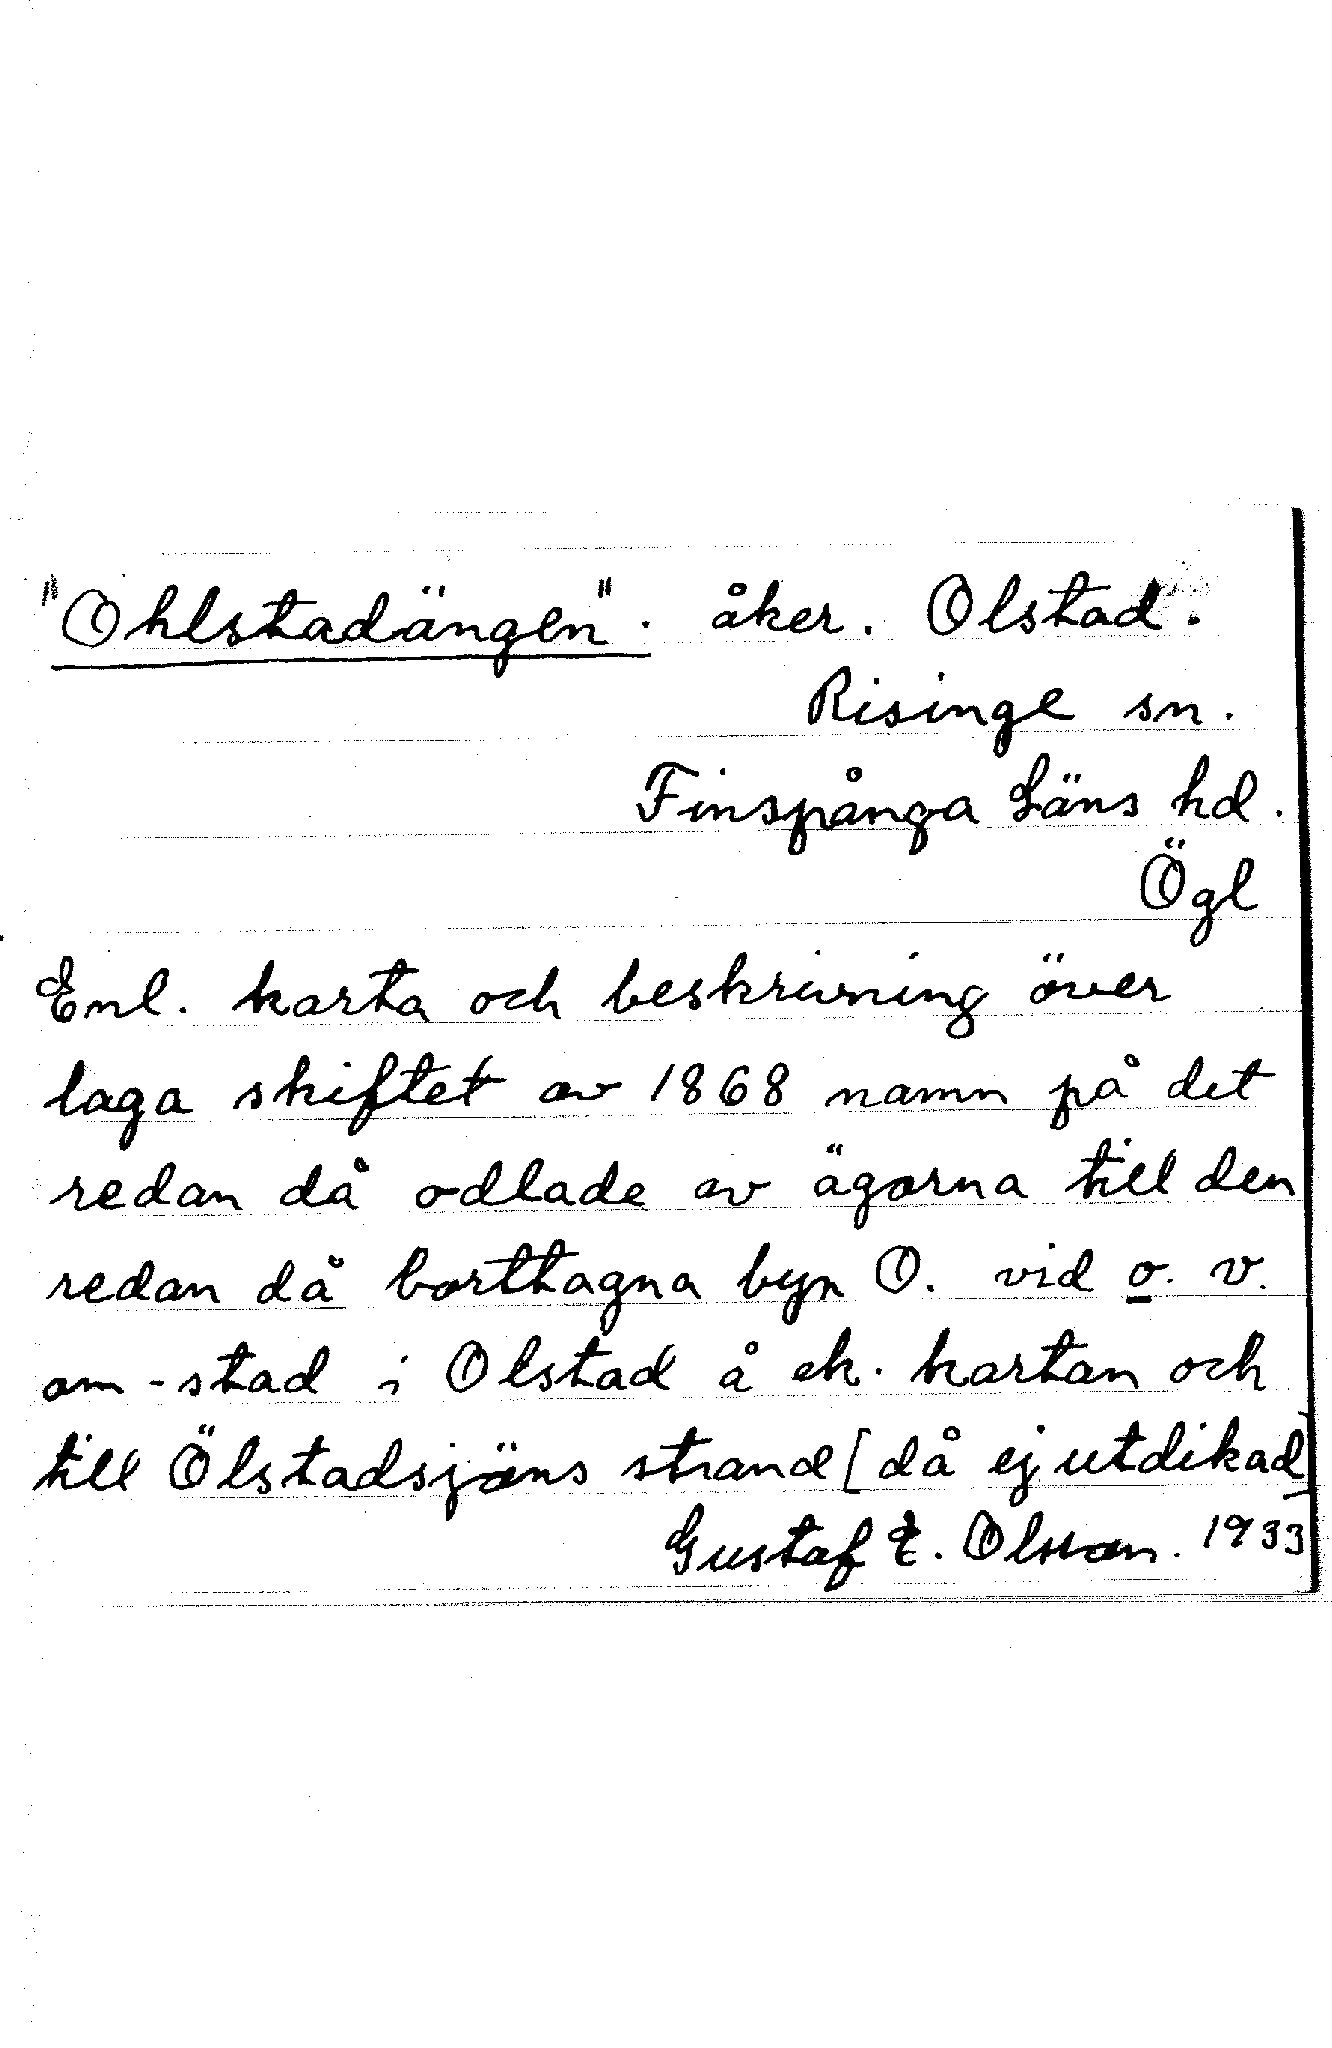 "Ohlstadängen". åker. Olstad.
Risinge sn.
Finspånga Läns hd.
Ögl
Enl. karta och beskrivning över
laga skiftet av 1868 namn på det
redan då odlade av ägorna till den
redan då borttagna byn O. vid o. v.
om -stad i Olstad å ek. kartan och
till Ölstadsjöns strand [då ej utdikad]
Gustaf E. Olsson. 1933